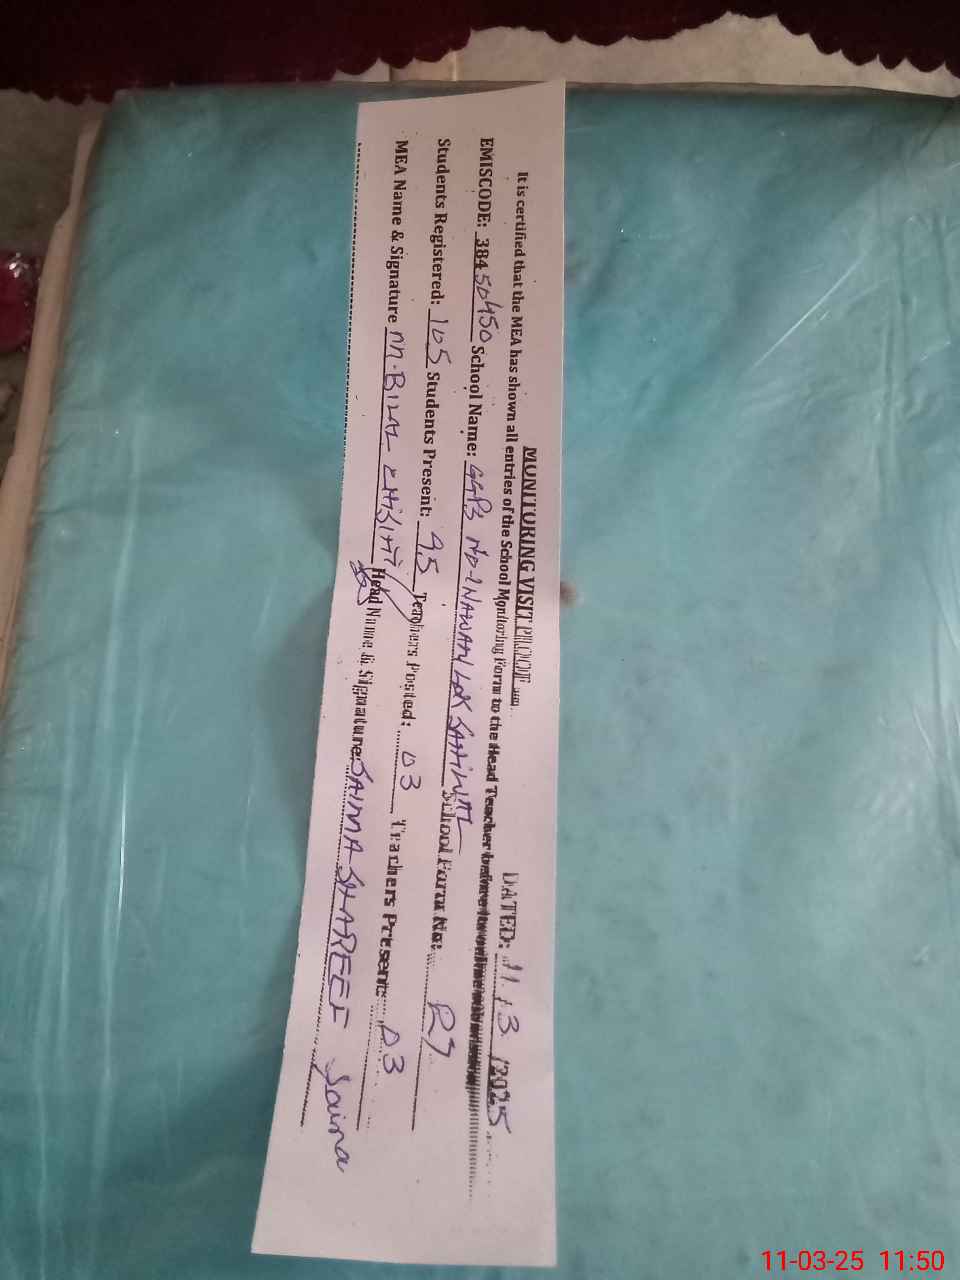 MONITORING VISIT PROOF DATED: 11/3/2025
It is certified that the MEA has shown all entries of the School Monitoring Form to the Head Teacher before its online
EMISCODE: 38450450 School Name: GGPS NO-1 NAWAN LOK SAHIWAL School Form No: R9
Students Registered: 105 Students Present: 95 Teachers Posted: 03 Teachers Present: 03
MEA Name & Signature M.BILAL Head Name & Signature: SAIMA SHAREEF Saima
11-03-25 11:50